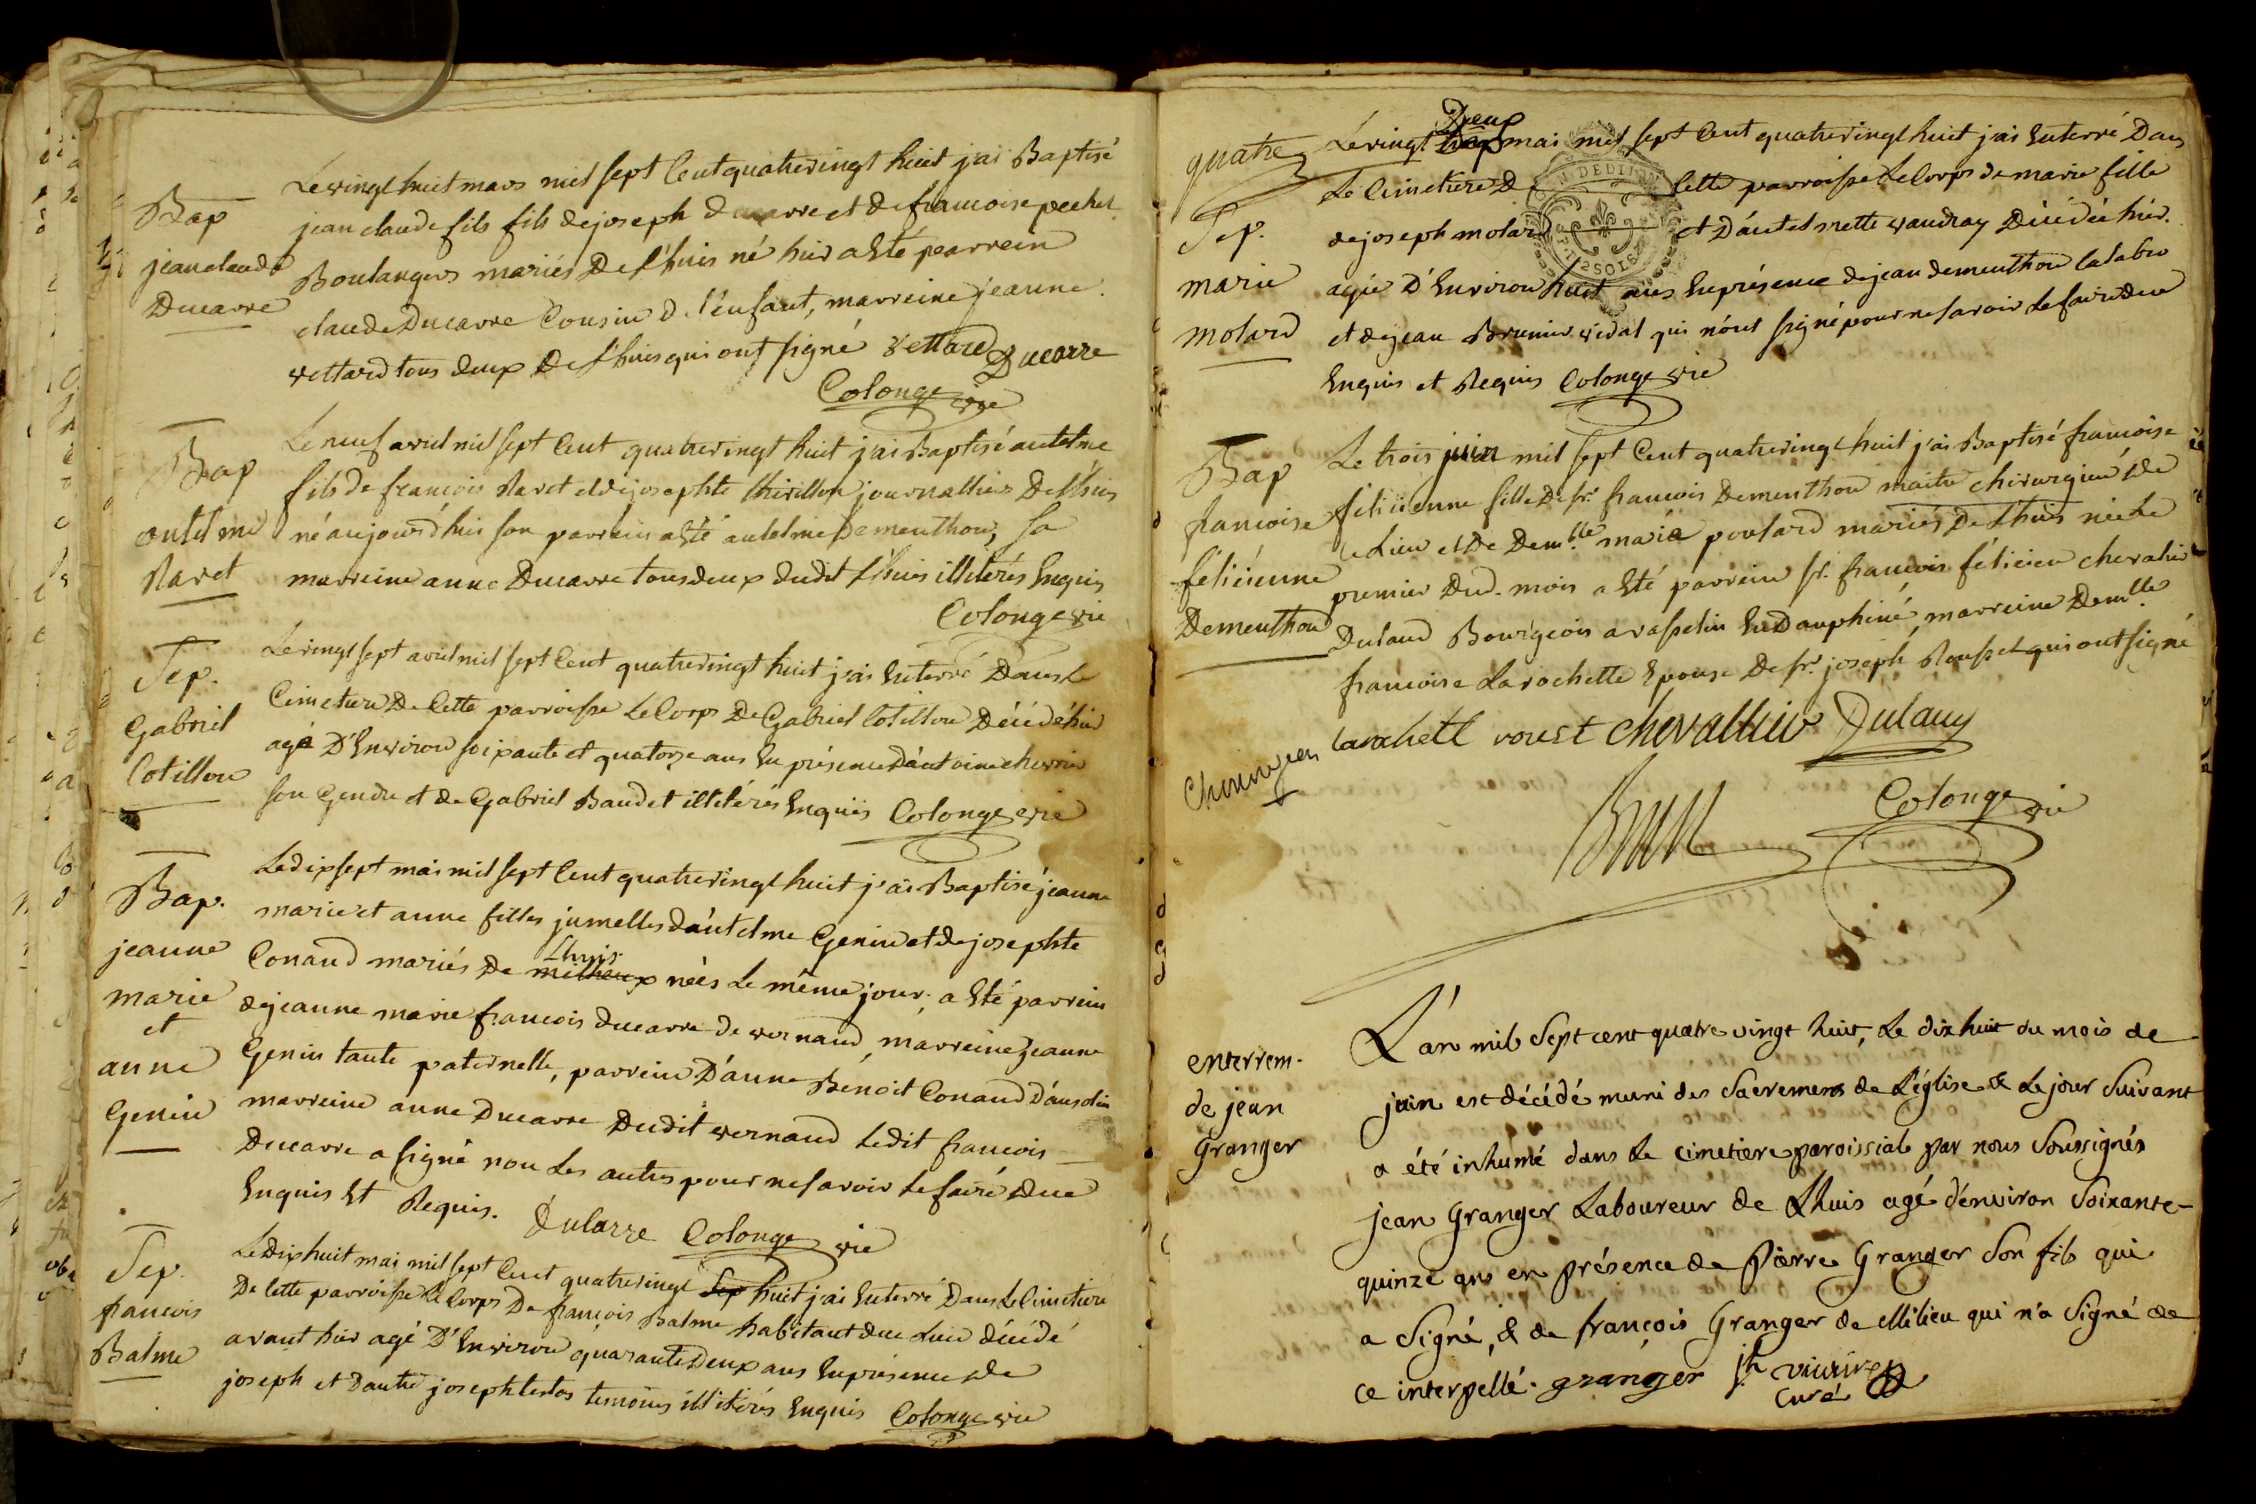 Bap
jean claude
Ducarre
Le vingt huit mars mil sept Cent quatrevingt huit j'ai Baptisé
jean claude fils fils de joseph ducarre et de francoise pechet
Boulangers mariés De Lhuis né hier a Eté parrein
claude Ducarre Cousin de l'enfant, marreine jeanne
vettard tous deux De Lhuis qui ont signé Vettard Ducarre
Colonge vic
Bap
antelme
Ravet
Le neuf avril mil sept Cent quatrevingt huit j'ai Baptisé antelme
fils de francois Ravet et de josephte thivillon journalliers De Lhuis
né aujourd'hui son parrein a Eté antelme Dementhon, sa
marreine anne Ducarre tous deux dudit Lhuis illiterés Enquis
Colonge vic
Sep.
Gabriel
Cotillon
Le vingt sept avril mil sept Cent quatrevingt huit j'ai Enterré Dans Le
Cimetiere De Cette parroisse Le Corps De Gabriel Cotillon Décédé hier
agé D'Environ soixante et quatorze ans En présence d'antoine
son Gendre et de Gabriel Baudet illitérés Enquis Colonge vic
Bap.
jeanne
marie
et
anne
Genin
Le dix sept mai mil sept Cent quatrevingt huit j'ai Baptisé jeanne
marie et anne filles jumelles d'antelme Genin et de josephte
Conand mariés De milieux Lhuis nées Le même jour. a Eté parrein
de jeanne marie francois ducarre de vernand, marreine jeanne
Genin tante paternelle, parrein D'anne Benoit Conand
marreine anne Ducarre Dudit vernand Ledit francois
Ducarre a signé non Les autres pour ne savoir Le faire Due
Enquis Et Requis. Ducarre Colonge vic
Sep.
francois
Balme
Le Dix huit mai mil sept Cent quatrevingt Sep huit j'ai Enterré Dans Le Cimetiere
De Cette parroisse Le Corps De francois Balme habitant dud Lieu décédé
avant hier agé D'Environ quarante Deux ans En présence de
joseph et d'autre joseph temoins illitérés Enquis Colonge vic
quatre
Sep.
marie
molard
Le vingt Deux mai mil sept Cent quatrevingt huit j'ai Enterré Dans
Le Cimetiere De Cette parroisse Le Corps de marie fille
de joseph molard et D'antelmette vaudray Décédée hier.
agée D'Environ huit ans En présence de jean dementhon
et de jean Brunier vidal qui n'ont signé pour ne savoir Le faire Due
Enquis et Requis Colonge vic
Bap
francoise
féliciénne
Dementhon
Le trois juin mil sept Cent quatrevingt huit j'ai Baptisé francoise
féliciénne fille De sr. francois Dementhon maitre chirurgien de
ce Lieu et De Demlle marie poulard mariés De Lhuis née Le
premier Dud. mois a Eté parrein sr. francois félicien chevalier
Dulaud Bourgeois a vasselin En Dauphiné, marreine Demlle
francoise Larochette Epouse De sr. joseph Rousset qui ont signé
Larochett chevallier Dulaud
Colonge vic
enterrem.
de jean
Granger
L'an mil Sept cent quatre vingt huit, Le dix huit du mois de
juin est décédé muni des Sacremens de L'église & Le jour Suivant
a été inhumé dans Le cimetiere paroissial par nous Soussignés
jean Granger Laboureur de Lhuis agé d'environ Soixante-
quinze ans en présence de Pierre Granger Son fils qui
a Signé, & de françois Granger de Milieu qui n'a Signé de
ce interpellé. granger
curé